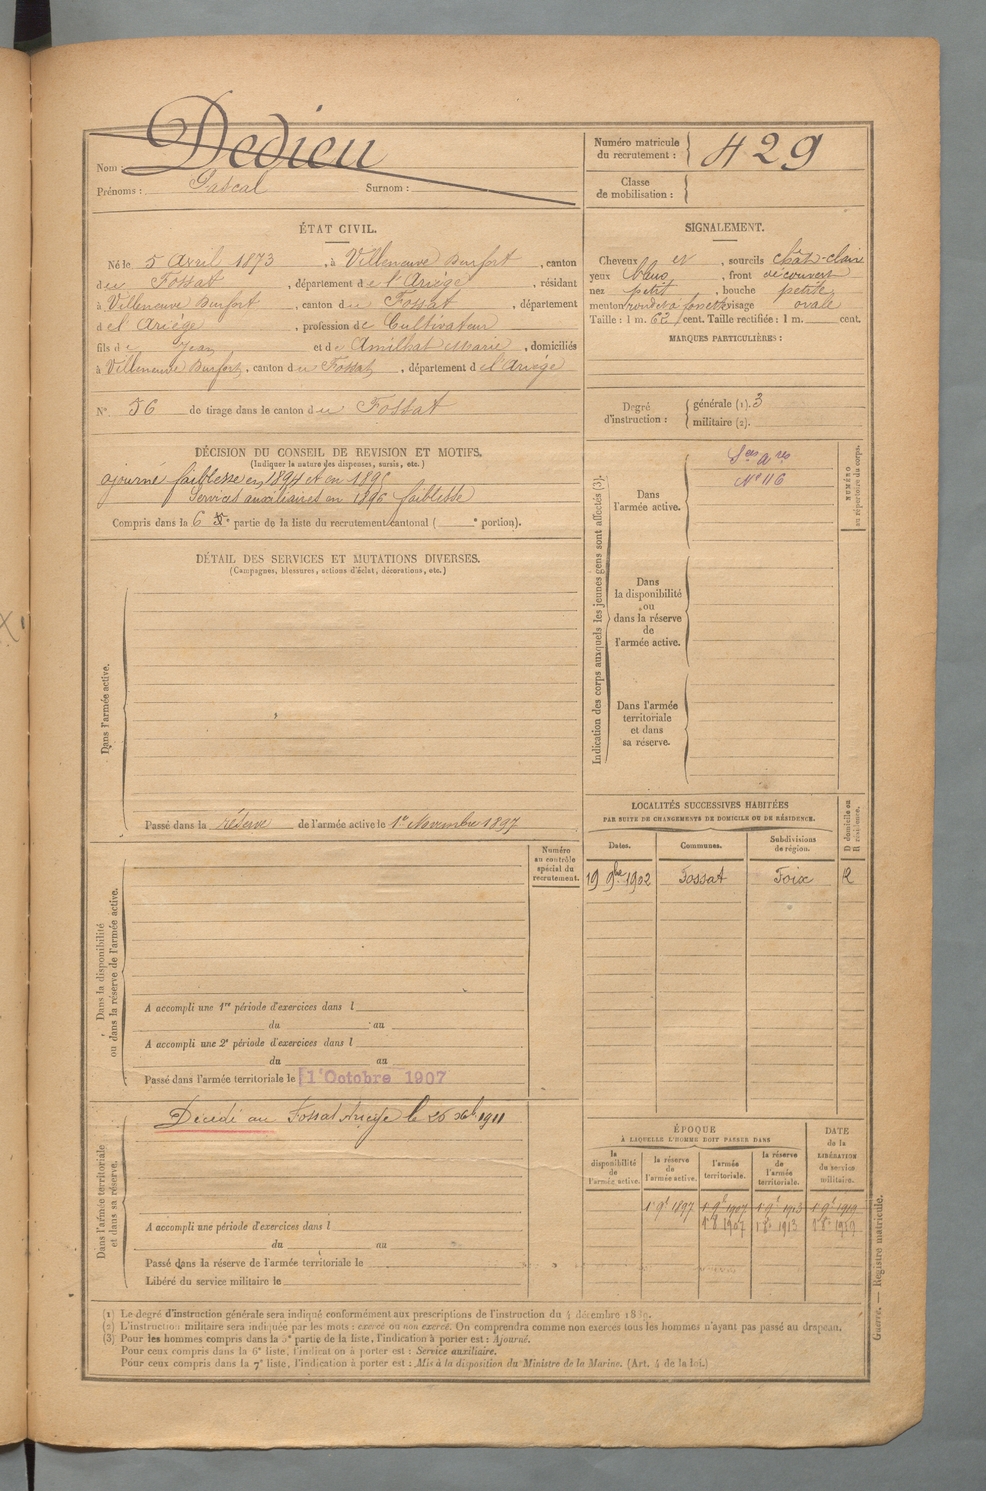 Nom : Dedieu
Prénoms : Pascal Surnom :
Numéro matricule du recrutement : 429
Classe de mobilisation :
ÉTAT CIVIL.
Né le 5 Avril 1873, à Villeneuve Durfort, canton
du Fossat, département de l'Ariège, résidant
à Villeneuve Durfort, canton du Fossat, département
d el Ariége, profession de Cultivateur
fils de Jean et de Amilhat Marie, domiciliés
à Villeneuve Durfort, canton du Fossat, département de l'Ariége
N° 56 de tirage dans le canton du Fossat
SIGNALEMENT.
Cheveux et, sourcils chât-clairs
yeux bleus, front découvert
nez petit, bouche petite
menton rond et à fossette visage ovale
Taille : 1 m. 62 cent. Taille rectifiée : 1 m. cent.
MARQUES PARTICULIÈRES :
Degré d'instruction : générale (1). 3
militaire (2).
DÉCISION DU CONSEIL DE REVISION ET MOTIFS.
(Indiquer la nature des dispenses, sursis, etc.)
ajourné faiblesse en 1894 et en 1895
Services auxiliaires en 1896 faiblesse
Compris dans la 6 e partie de la liste du recrutement cantonal ( e portion).
DÉTAIL DES SERVICES ET MUTATIONS DIVERSES.
(Campagnes, blessures, actions d'éclat, décorations, etc.)
Dans l'armée active.
Passé dans la réserve de l'armée active le 1er Novembre 1897
Indication des corps auxquels les jeunes gens sont affectés (3).
NUMÉRO au répertoire du corps.
Dans l'armée active.
Sces Ares
N° 116
Dans la disponibilité ou dans la réserve de l'armée active.
Dans l'armée territoriale et dans sa réserve.
LOCALITÉS SUCCESSIVES HABITÉES
PAR SUITE DE CHANGEMENTS DE DOMICILE OU DE RÉSIDENCE.
D domicile ou R résidence.
Dates. Communes. Subdivisions de région.
19 9bre 1902 Fossat Foix R
Numéro au contrôle spécial du recrutement.
Dans la disponibilité ou dans la réserve de l'armée active.
A accompli une 1re période d'exercices dans l
du au
A accompli une 2e période d'exercices dans l
du au
Passé dans l'armée territoriale le 1er Octobre 1907
Dans l'armée territoriale et dans sa réserve.
Décédé au Fossat Ariège le 26 Xbre 1911
A accompli une période d'exercices dans l
du au
Passé dans la réserve de l'armée territoriale le
Libéré du service militaire le
ÉPOQUE
À LAQUELLE L'HOMME DOIT PASSER DANS
DATE de la LIBÉRATION du service militaire.
la disponibilité de l'armée active. la réserve de l'armée active. l'armée territoriale. la réserve de l'armée territoriale.
1er 9bre 1897 1 9bre 1907 1 9bre 1913 1 9bre 1919
1er 8bre 1907 1 8bre 1913 1 8bre 1919
(1) Le degré d'instruction générale sera indiqué conformément aux prescriptions de l'instruction du 4 décembre 1889.
(2) L'instruction militaire sera indiquée par les mots : exercé ou non exercé. On comprendra comme non exercés tous les hommes n'ayant pas passé au drapeau.
(3) Pour les hommes compris dans la 5e partie de la liste, l'indication à porter est : Ajourné.
Pour ceux compris dans la 6e liste, l'indication à porter est : Service auxiliaire.
Pour ceux compris dans la 7e liste, l'indication à porter est : Mis à la disposition du Ministre de la Marine. (Art. 4 de la loi.)
Guerre. — Registre matricule.